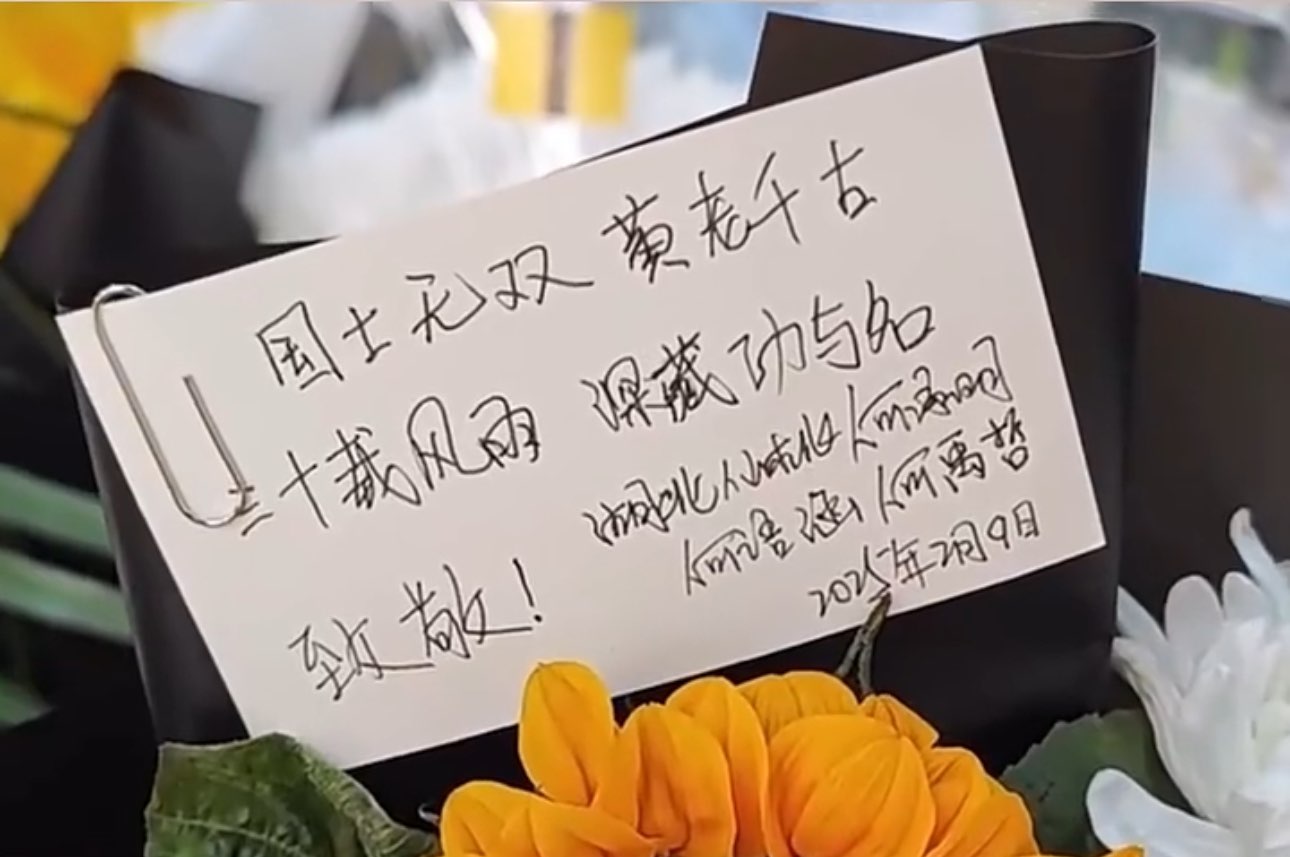 国士无双 黄老千古
三十载风雨 深藏功与名
致敬!
湖北仙桃 何
何语涵 何禹哲
2025年2月9日